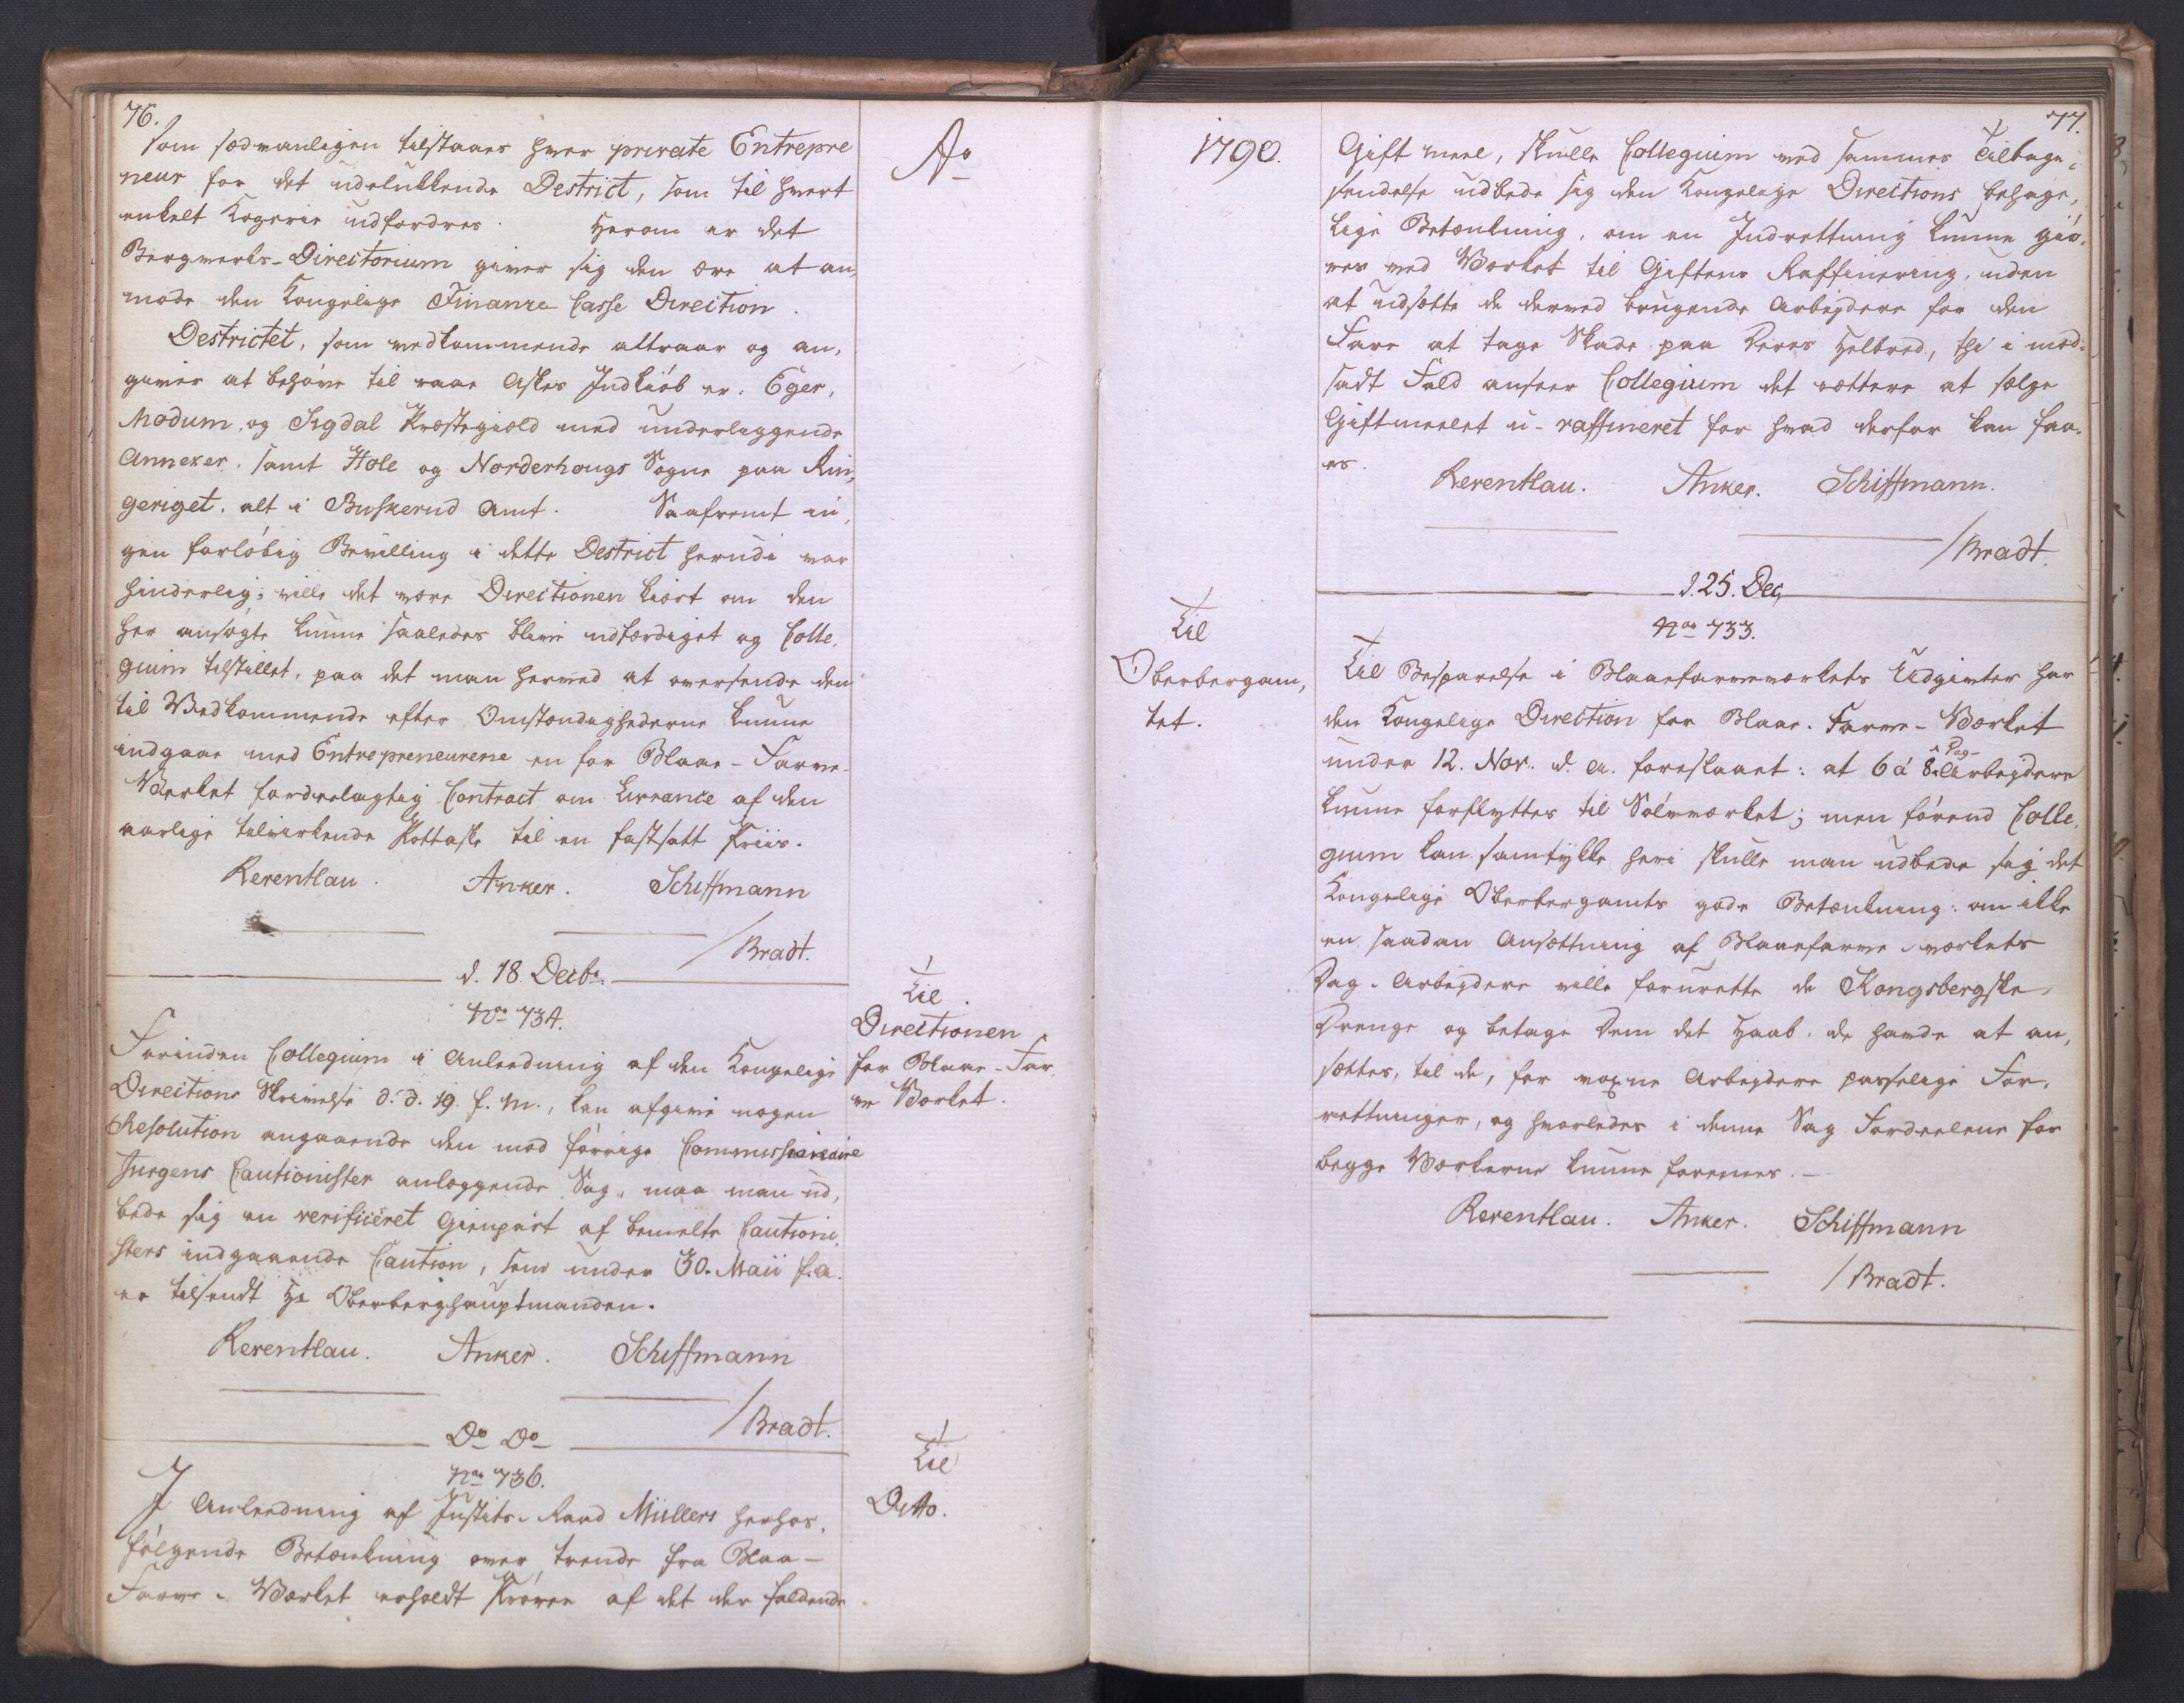 76.
som sædvanligen tilstaaes hver private Entrepre
neur for det udelukkende Destrict, som til hvert
enkelt Kogerie udfordres. Herom er det
Bergverks-Directorium giver sig den ære at an,
mode den Kongelige Finance Casse Direction.
Destrictet, som vedkommende attraaer og an,
giver at behøve til raae Askes Indkiøb er: Eger,
Modum, og Sigdal Præstegiæld med underliggende
Annexer, samt Hole og Norderhougs Sogne paa Rin,
geriget, alt i Buskerud Amt. Saafremt in,
gen forløbig Bevilling i dette Destrict herudi var
hinderlig; ville det være Directionen kiært om den
her ansøgte kunne saaledes blive udfærdiget og Colle,
gium tilstillet, paa det man herved at oversende den
til Vedkommende efter Omstændighederne kunne
indgaae med Entrepreneurene en for Blaae-Farve-
Værket fordeelagtig Contract om Livrance af den
aarlige tilvirkende Pottaske til en fastsatt Priis.
Reventlau. Anker. Schiffmann
/Bradt.
d. 18. Decbr.
No 734.
Forinden Collegium i Anleedning af den Kongelige
Directions Skrivelse d: d. 19. f. M., kan afgive nogen
Resolution angaaende den mod forrige Commissionaire
Jurgens Cautionister anlæggende Sag, maa man ud,
bede sig en verificeret Gienpart af bemelte Cautioni,
sters indgaaende Caution, som under 30. Maii f. a.
er tilsendt Hr Oberberghauptmanden.
Reventlau. Anker. Schiffmann
/Bradt.
Do Do
No 736.
I Anleedning af Justits-Raad Müllers herhos,
følgende Betænkning over trende fra Blaa-
Farve-Værket erholdt Prøver af det der faldende
Ao
Til
Directionen
for Blaae-Far,
ve Værket.
Til
Ditto.
1790.
Til
Oberbergam,
tet.
77.
Gift meel, skulle Collegium ved sammes Tilbage,
sendelse udbede sig den Kongelige Directions behage,
lige Betænkning, om en Indrettning kunne giø,
res ved Værket til Giftens Raffinering, uden
at udsætte de derved brugende Arbejdere for den
Fare at tage Skade paa Deres Helbred, thi i mod-
sadt Fald anseer Collegium det rettere at sælge
Giftmeelet u-raffineret for hvad derfor kan faa,
es.
Reventlau. Anker. Schiffmann.
/Bradt.
d. 25. Dec,
No 733.
Til Besparelse i Blaaefarveværkets Udgivter har
den Kongelige Direction for Blaae-Farve-Værket
under 12. Nov. d. A. foreslaaet: at 6 á 8 Dag-Arbejdere
kunne forflyttes til Sølvværket; men førend Colle,
gium kan samtykke heri skulle man udbede sig det
Kongelige Oberbergamts gode Betænkning: om ikke
en saadan Ansættning af Blaaefarve-værkets
Dag-Arbejdere ville forurette de Kongsbergske
Drenge og betage Dem det Haab, de havde at an,
sættes, til de, for voxne Arbejdere passelige For,
rettninger, og hvorledes i denne Sag Fordeelene for
begge Værkerne kunne forenes.-
Reventlau. Anker. Schiffmann
/Bradt.